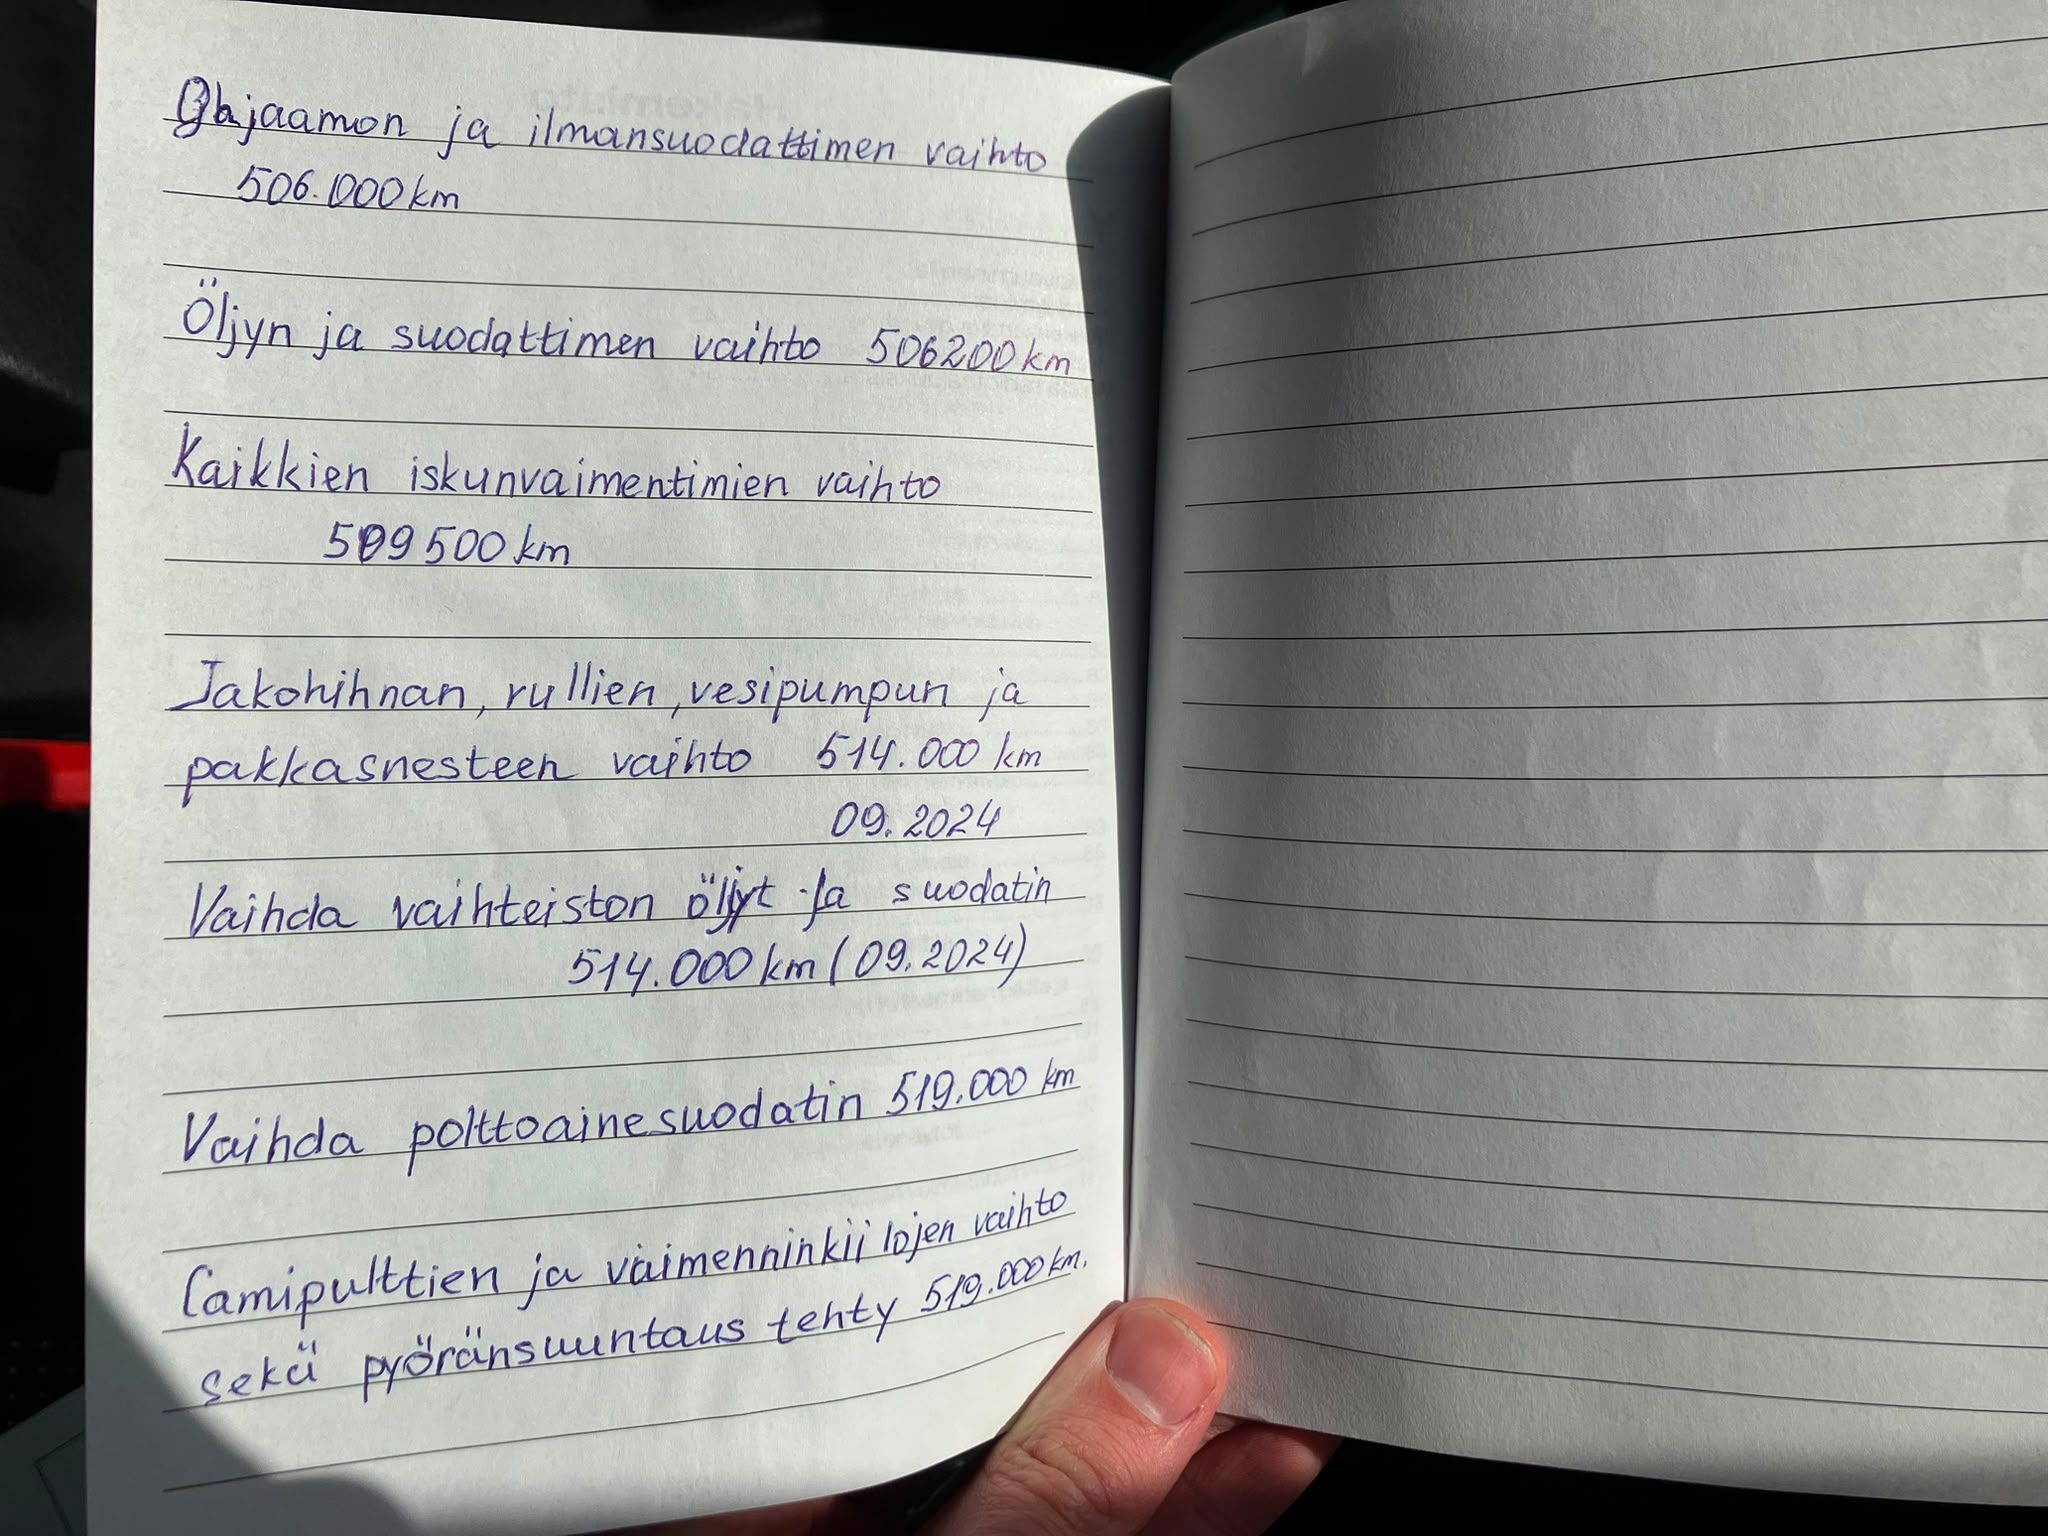 Ohjaamon ja ilmansuodattimen vaihto
506.000 km
Öljyn ja suodattimen vaihto 506200 km
Kaikkien iskunvaimentimien vaihto
509 500 km
Jakohihnan, rullien, vesipumpun ja
pakkasnesteen vaihto 514.000 km
09.2024
Vaihda vaihteiston öljyt ja suodatin
514.000 km (09.2024)
Vaihda polttoainesuodatin 519.000 km
Camipulttien ja vaimenninkiilojen vaihto
sekä pyöränsuuntaus tehty 519.000 km.